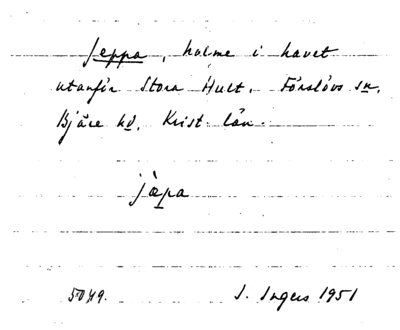 Jeppa, holme i havet
utanför Stora Hult. Förslövs sn,
Bjäre hd, Krist. län.
jäpa
5049. I. Ingers 1951